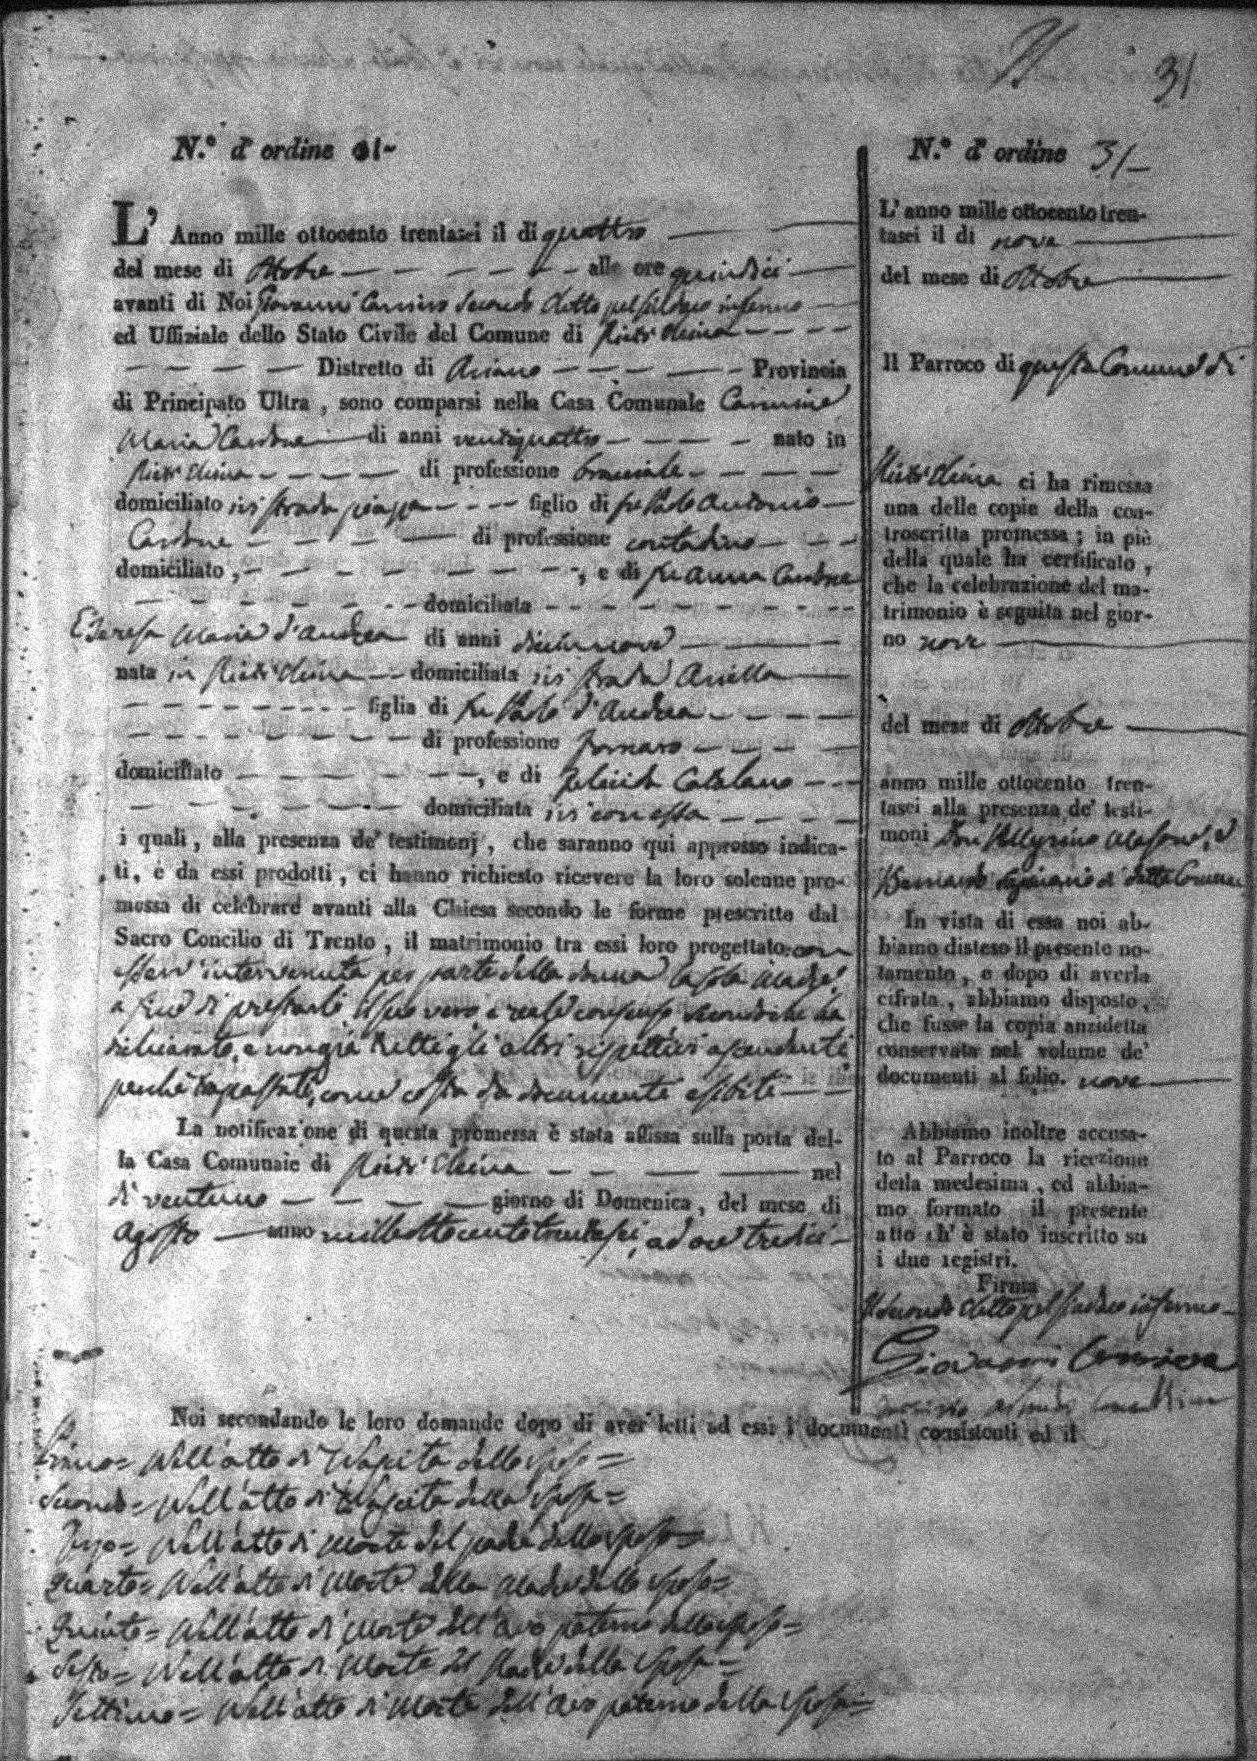 31
N.º d'ordine 31-
L'Anno mille ottocento trentasei il di quattro
del mese di Ottobre alle ore quindici
avanti di Noi Giovanni secondo eletto pel sindaco infermo
ed Uffiziale dello Stato Civile del Comune di Pietr'elcina
Distretto di Ariano Provincia
di Principato Ultra, sono comparsi nella Casa Comunale Carmine
Maria Cardone di anni ventiquattro nato in
Pietr'elcina di professione bracciale
domiciliato ivi strada piazza figlio di fu Paolo Antonio
Cardone di professione contadino
domiciliato, , e di fu Anna Cardone
domiciliata
E Teresa Maria d'Andrea di anni diecinnove
nata in Pietr'elcina domiciliata ivi strada Aniella
figlia di fu Paolo d'Andrea
di professione fornaro
domiciliato , e di Felicita Catalano
domiciliata ivi con essa
i quali, alla presenza de' testimonj, che saranno qui appresso indica-
ti, e da essi prodotti, ci hanno richiesto ricevere la loro solenne pro-
messa di celebrare avanti alla Chiesa secondo le forme prescritte dal
Sacro Concilio di Trento, il matrimonio tra essi loro progettato: con
esser' intervenuta per parte della donna la sola madre,
a fine di prestarle il suo vero, e reale consenso secondoche ha
dichiarato, e non già tutti gli altri rispettivi ascendenti
perchè trapassati, come costa da documenti esibiti
La notificazione di questa promessa è stata affissa sulla porta del-
la Casa Comunale di Pietr'elcina nel
dì ventuno giorno di Domenica, del mese di
Agosto anno milleottocentotrentasei, ad ore tredici
N.º d'ordine 31-
L'anno mille ottocento tren-
tasei il di nove
del mese di Ottobre
Il Parroco di questa Comune di
Pietr'elcina ci ha rimessa
una delle copie della con-
troscritta promessa; in piè
della quale ha certificato,
che la celebrazione del ma-
trimonio è seguita nel gior-
no nove
del mese di Ottobre
anno mille ottocento tren-
tasei alla presenza de' testi-
moni Don Pellegrino Masone, e
Bernardo di detta Comune
In vista di essa noi ab-
biamo disteso il presente no-
tamento, e dopo di averla
cifrata, abbiamo disposto,
che fusse la copia anzidetta
conservata nel volume de'
documenti al folio. nove
Abbiamo inoltre accusa-
to al Parroco la ricezione
della medesima, ed abbia-
mo formato il presente
atto ch'è stato inscritto su
i due registri.
Firma
Il secondo eletto pel sindaco infermo
Giovanni
Noi secondando le loro domande dopo di aver letti ad essi i documenti consistenti ed il
Primo= Nell'atto di Nascita dello sposo=
Secondo= Nell'atto di Nascita della sposa=
Terzo= Nell'atto di morte del padre dello sposo=
Quarto= Nell'atto di Morte della Madre dello sposo=
Quinto= Nell'atto di Morte dell'avo paterno dello sposo=
Sesto= Nell'atto di Morte del Padre della sposa=
Settimo= Nell'atto di Morte dell'avo paterno della sposa=